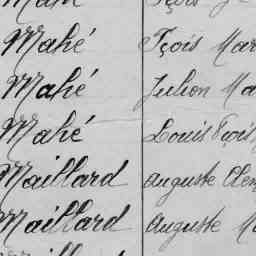 Mahé Fçois Mar
Mahé Julien Ma
Mahé Louis Fçois
Maillard Auguste Clem
Maillard Auguste Ma